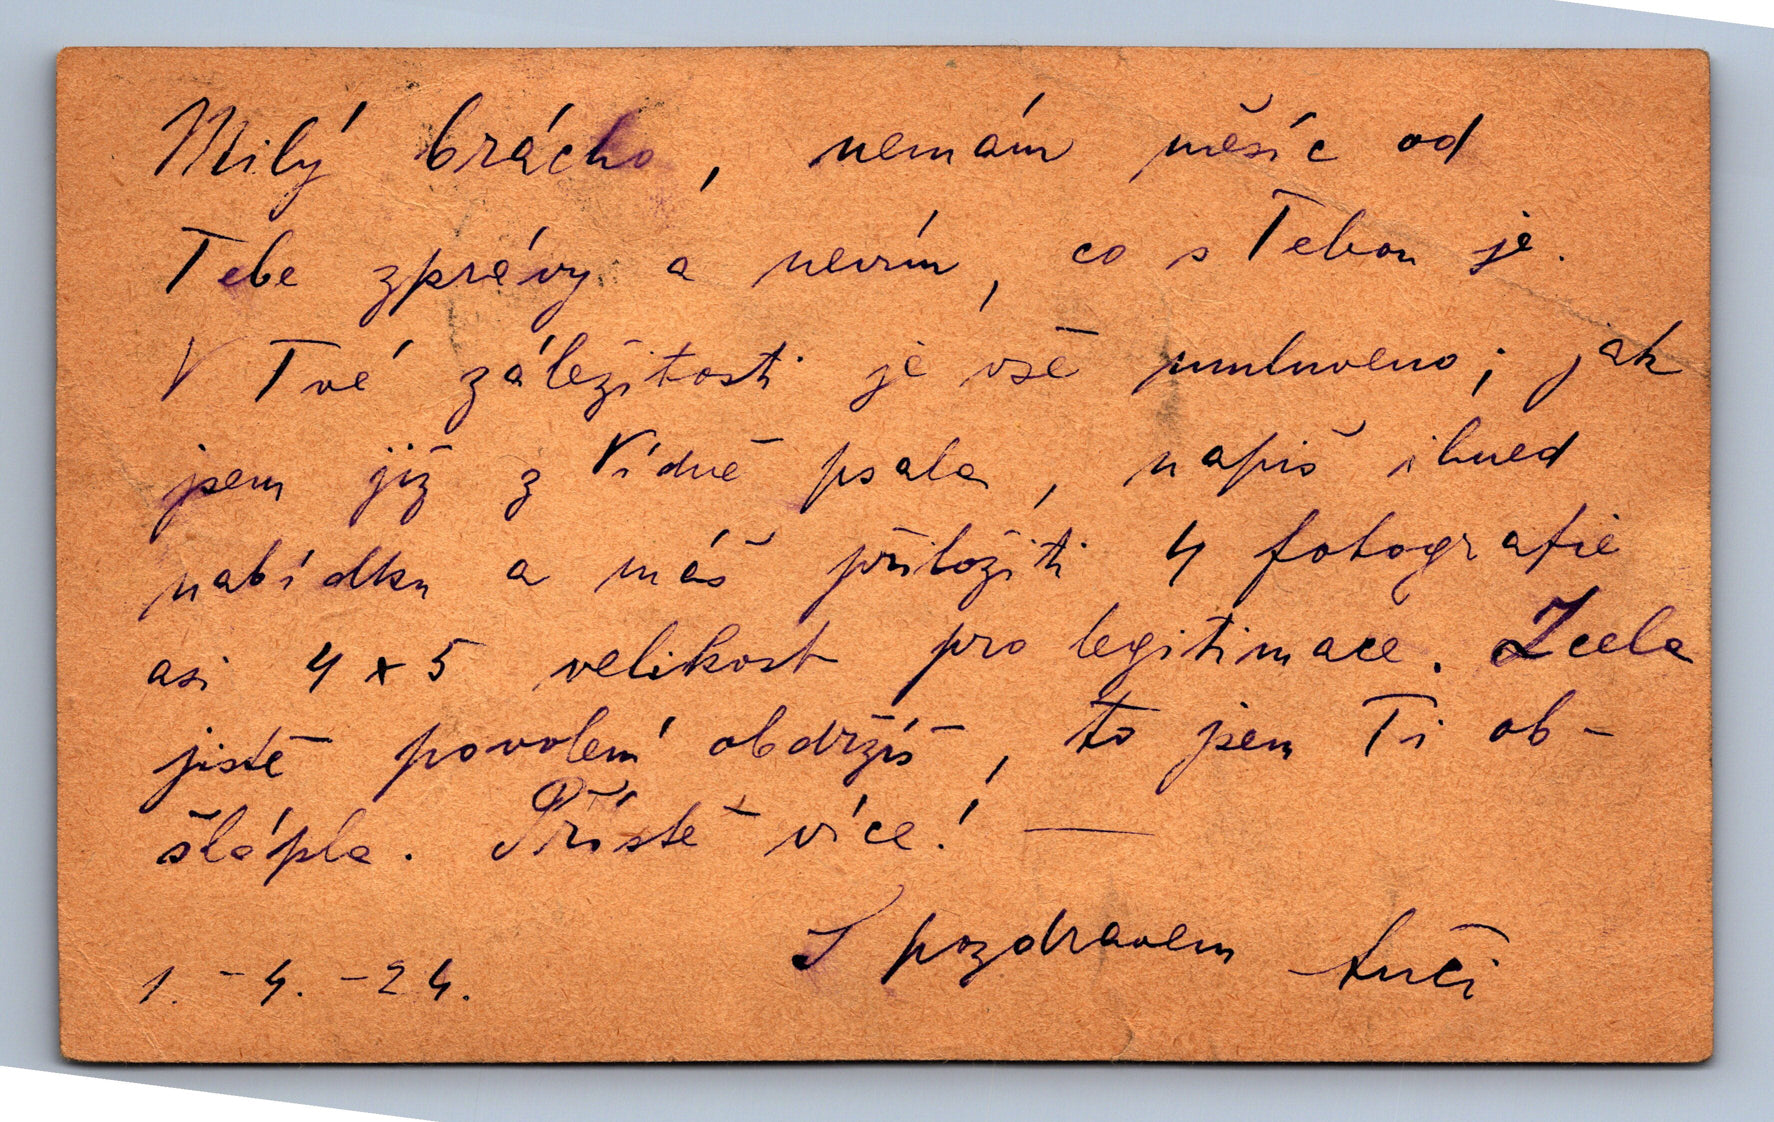 Milý brácho, nemám měsíc od
Tebe zprávy a nevím, co s Tebou je.
V Tvé záležitosti je vše umluveno; jak
jsem již z Vídně psala, napiš ihned
nabídku a máš přiložiti 4 fotografie
asi 4 x 5 velikost pro legitimace. Zcela
jistě povolení obdržíš, to jsem Ti ob-
šlápla. Příště více! —
S pozdravem Anči
1. - 4. - 24.